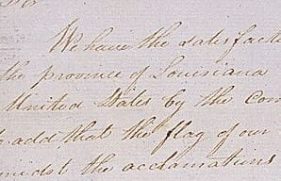 Sir
We have the satisfact
the province of Louisiana
United States by the Com
to add that the flag of our
midst the acclamations